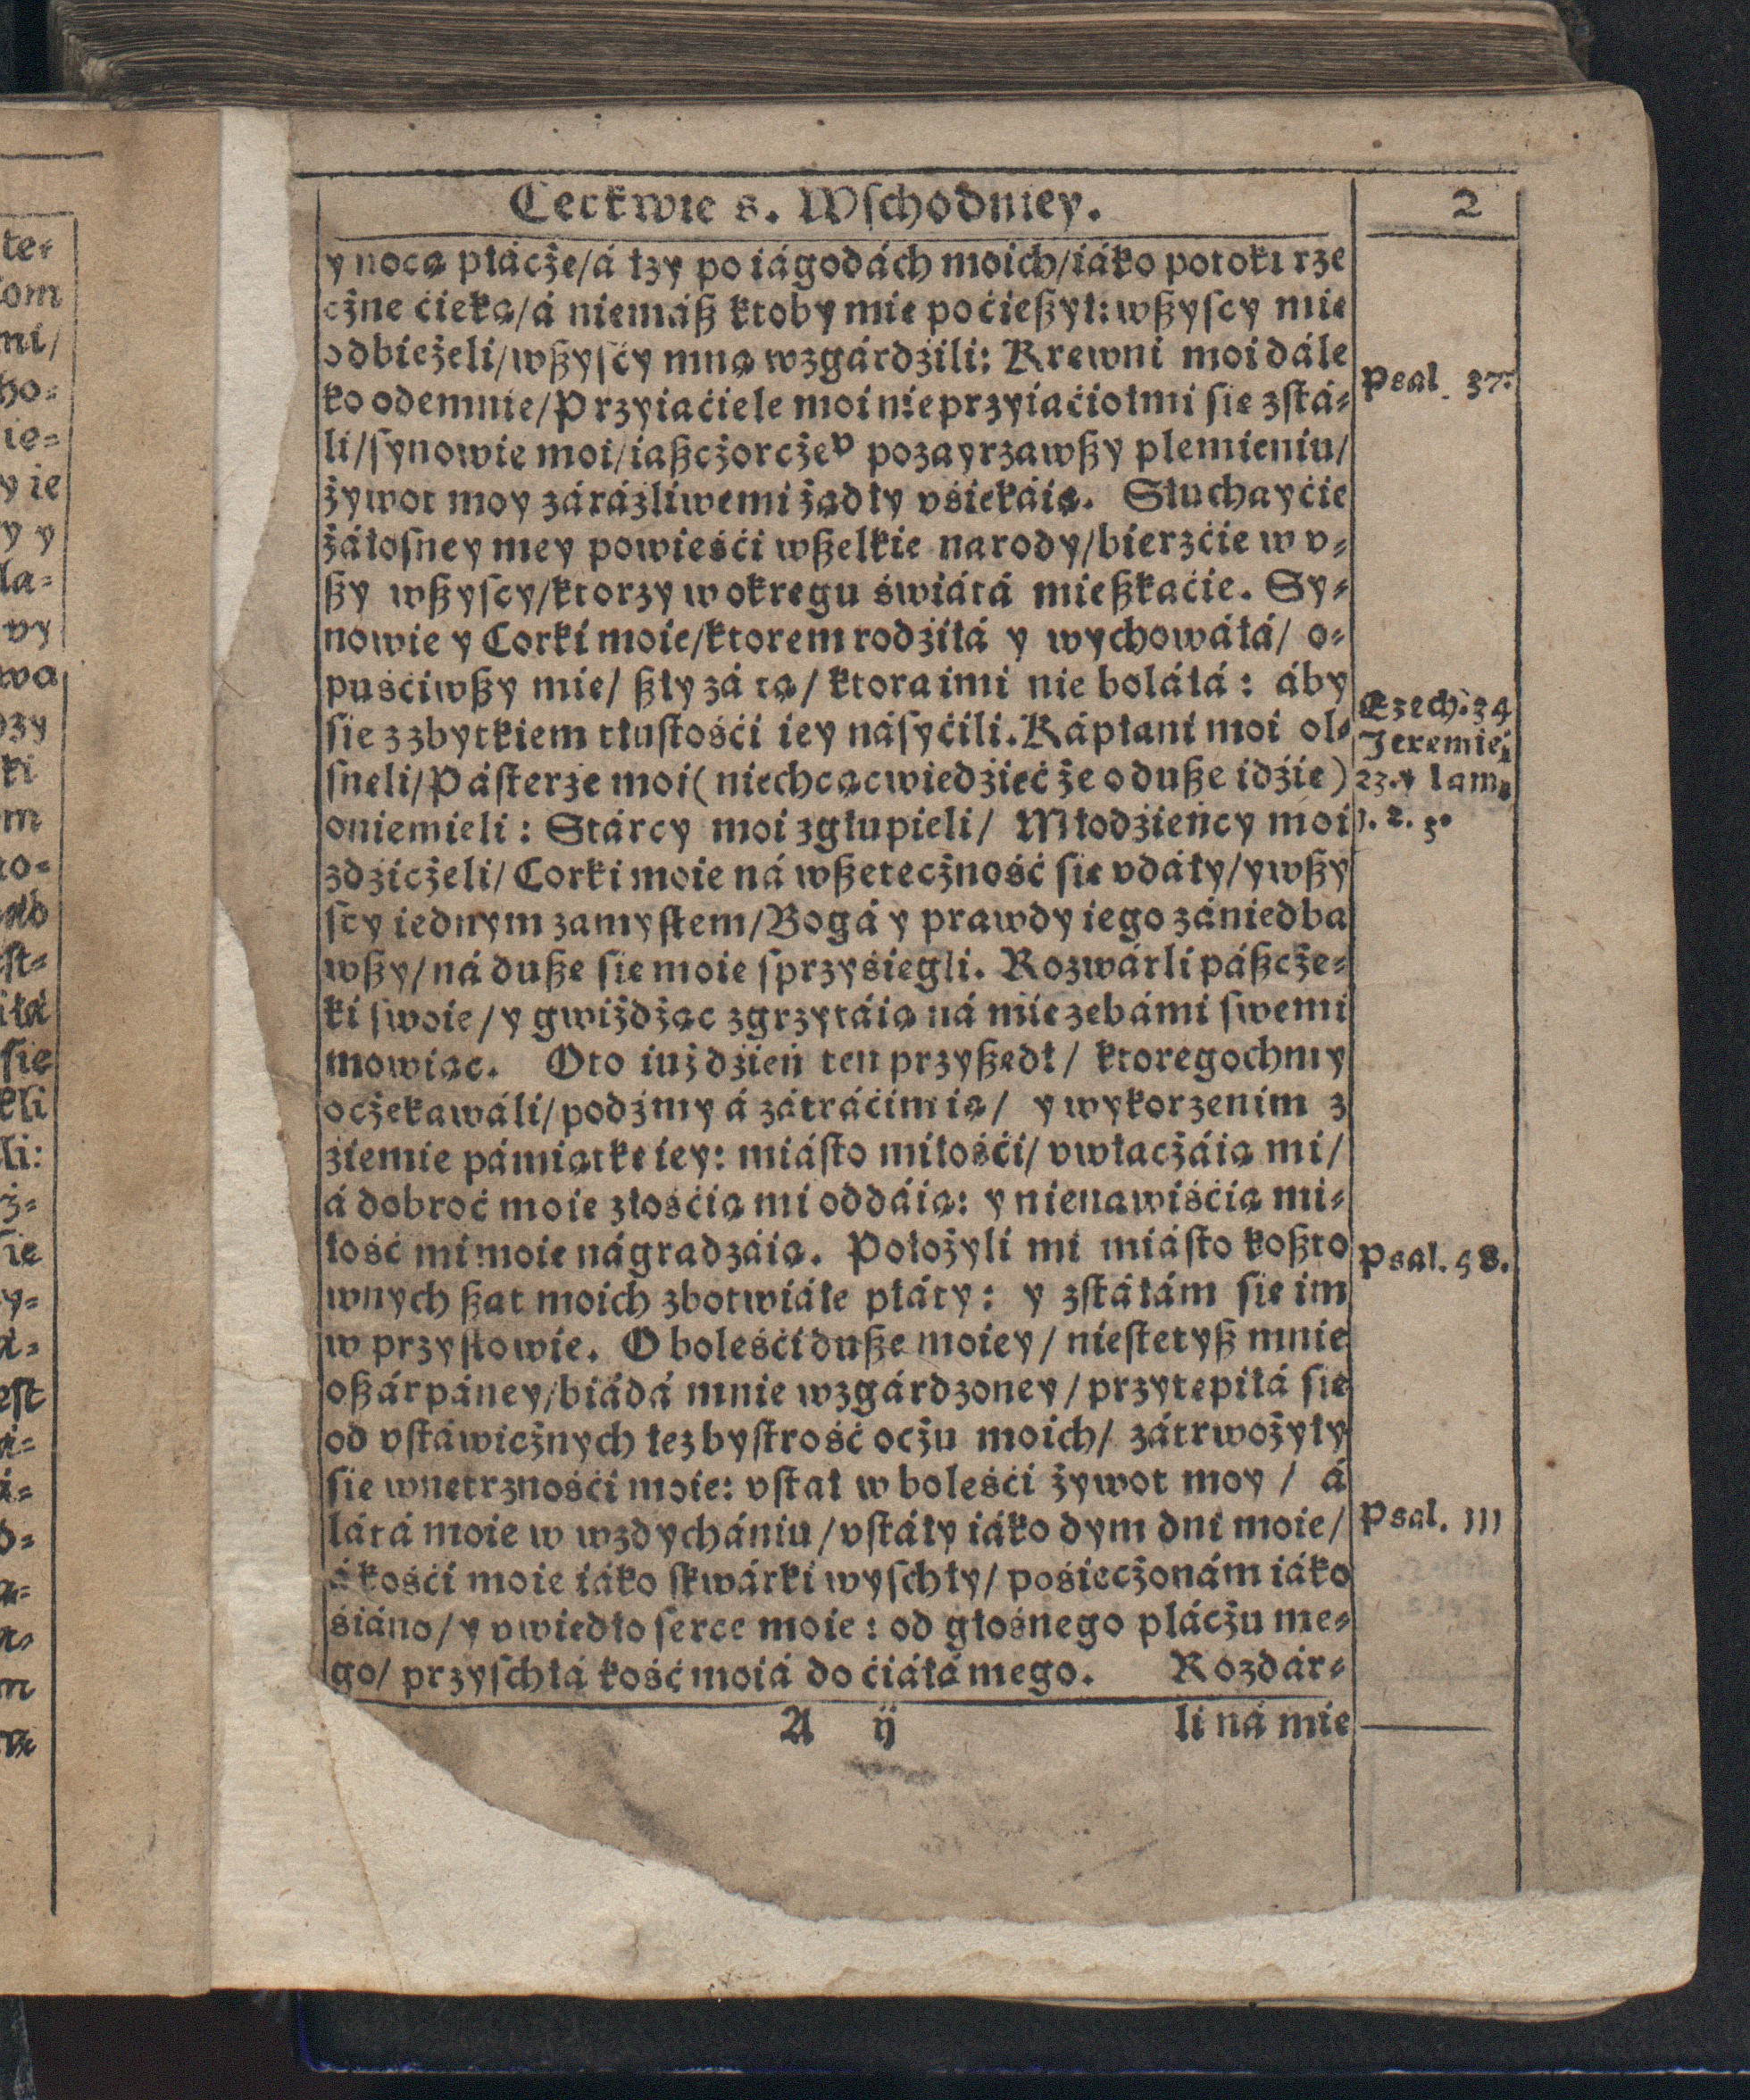 Cerkwie s. Wſchodniey.
2
y nocą płácże/á łzy po iágodách moich/iáko potoki rze
cżne ćieką/á niemáß ktoby mie poćießył: wßyſcy mie
odbieżeli/wßyſcy mną wzgárdźili: Krewni moi dále
ko odemnie/Przyiaćiele moi nieprzyiaćiołmi ſie zſtá⸗
li/ſynowie moi/iaßcżorcżeᵛ pozayrzawßy plemieniu/
żywot moy záráźliwemi żądły vśiekáią. Słuchayćie
żáłoſney mey powieśći wßelkie narody/bierzćie w v⸗
ßy wßyſcy/ktorzy w okregu świátá mießkaćie. Sy⸗
nowie y Corki moie/ktorem rodźiłá y wychowáłá/ o⸗
puśćiwßy mie/ ßły zá tą/ ktora imi nie boláłá: áby
ſie z zbytkiem tłuſtośći iey náſyćili. Kápłani moi ol⸗
ſneli/Páſterze moi (niechcąc wiedźieć że o duße idźie)
oniemieli: Stárcy moi zgłupieli/ Młodźieńcy moi
zdźicżeli/ Corki moie ná wßetecżność ſie vdáły/y wßy
ſcy iednym zamyſłem/Bogá y prawdy iego zániedba
wßy/ná duße ſie moie ſprzyśiegli. Rozwárli páßcże⸗
ki ſwoie/y gwiżdżąc zgrzytáią ná mie zebámi ſwemi
mowiąc. Oto iuż dźień ten przyßedł/ ktoregochmy
ocżekawáli/podźmy á zátráćim ią/ y wykorzenim z
źiemie pámiątke iey: miáſto miłośći/ vwłacżáią mi/
á dobroć moie złośćią mi oddáią: y nienawiśćią mi⸗
łość mi moie nágradzáią. Położyli mi miáſto koßto
wnych ßat moich zbotwiáłe płáty: y zſtáłám ſie im
w przyſłowie. O boleśći duße moiey/ nieſtetyß mnie
oßárpáney/biádá mnie wzgárdzoney/przytepiłá ſie
od vſtáwicżnych łez byſtrość ocżu moich/ zátrwożyły
ſie wnetrznośći moie: vſtał w boleśći żywot moy / á
látá moie w wzdychániu/vſtáły iáko dym dni moie/
á kośći moie iáko ſkwárki wyſchły/ pośiecżonám iáko
śiáno/y vwiędło ſerce moie: od głośnego plácżu me⸗
go/ przyſchłá kość moiá do ćiáłá mego. Rozdár⸗
A ij li ná mie
Psal. 37.
Ezech. 34
Jeremie.
23. y lam.
1. 2. 3.
Psal. 58.
Psal. 111